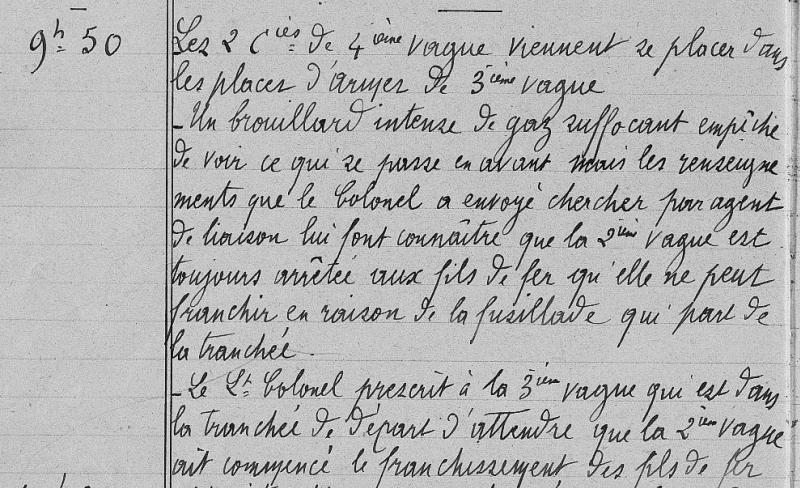 9h 50
Les 2 Cies de 4ième vague viennent se placer dans
les places d'armes de 3ième vague
- Un brouillard intense de gaz suffocant empêche
de voir ce qui se passe en avant mais les renseigne
ments que le Colonel a envoyé chercher par agent
de liaison lui font connaître que la 2ième vague est
toujours arrêtée aux fils de fer qu'elle ne peut
franchir en raison de la fusillade qui part de
la tranchée.
- Le Lt Colonel prescrit à la 3ième vague qui est dans
la tranchée de départ d'attendre que la 2ième vague
ait commencé le franchissement des fils de fer